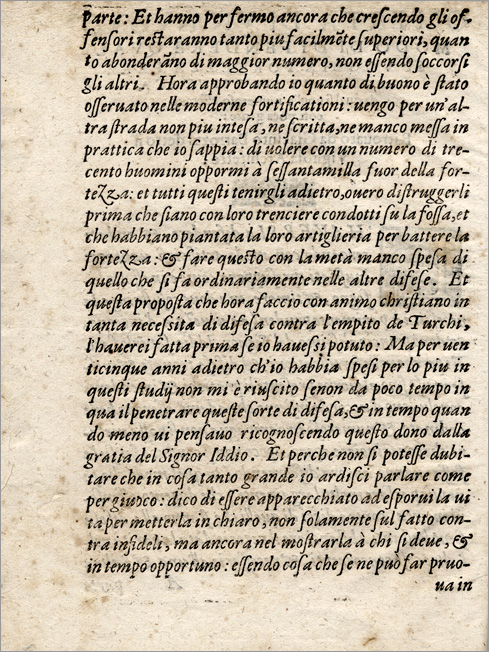 parte: Et hanno per fermo ancora che crescendo gli of-
fensori restaranno tanto piu facilmẽte superiori, quan
to abonderãno di maggior numero, non essendo soccorsi
gli altri. Hora approbando io quanto di buono è stato
osseruato nelle moderne fortificationi: uengo per un'al
tra strada non piu intesa, ne scritta, ne manco messa in
prattica che io sappia: di uolere con un numero di tre-
cento huomini oppormi à sessantamilla fuor della for-
tezza: et tutti questi tenirgli adietro, ouero distruggerli
prima che siano con loro trenciere condotti su la fossa, et
che habbiano piantata la loro artiglieria per battere la
fortezza: & fare questo con la metà manco spesa di
quello che si fa ordinariamente nelle altre difese. Et
questa proposta che hora faccio con animo christiano in
tanta necessita di difesa contra l'empito de Turchi,
l'hauerei fatta prima se io hauessi potuto: Ma per uen
ticinque anni adietro ch'io habbia spesi per lo piu in
questi studij non mi è riuscito senon da poco tempo in
qua il penetrare queste sorte di difesa, & in tempo quan
do meno ui pensauo ricognoscendo questo dono dalla
gratia del Signor Iddio. Et perche non si potesse dubi-
tare che in cosa tanto grande io ardisci parlare come
per giuoco: dico di essere apparecchiato ad esporui la ui
ta per metterla in chiaro, non solamente sul fatto con-
tra infideli, ma ancora nel mostrarla à chi si deue, &
in tempo opportuno: essendo cosa che se ne puo far pruo-
ua in